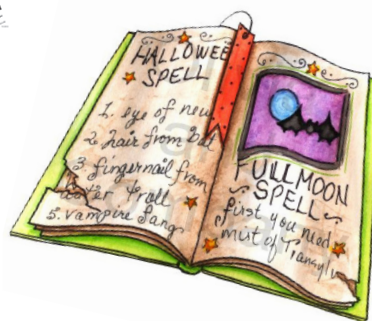 HALLOWEE
SPELL
1. eye of new
2. hair from bat
3. fingernail from
troll
5. vampire fang
FULLMOON
SPELL
first you need
mist of Transylv